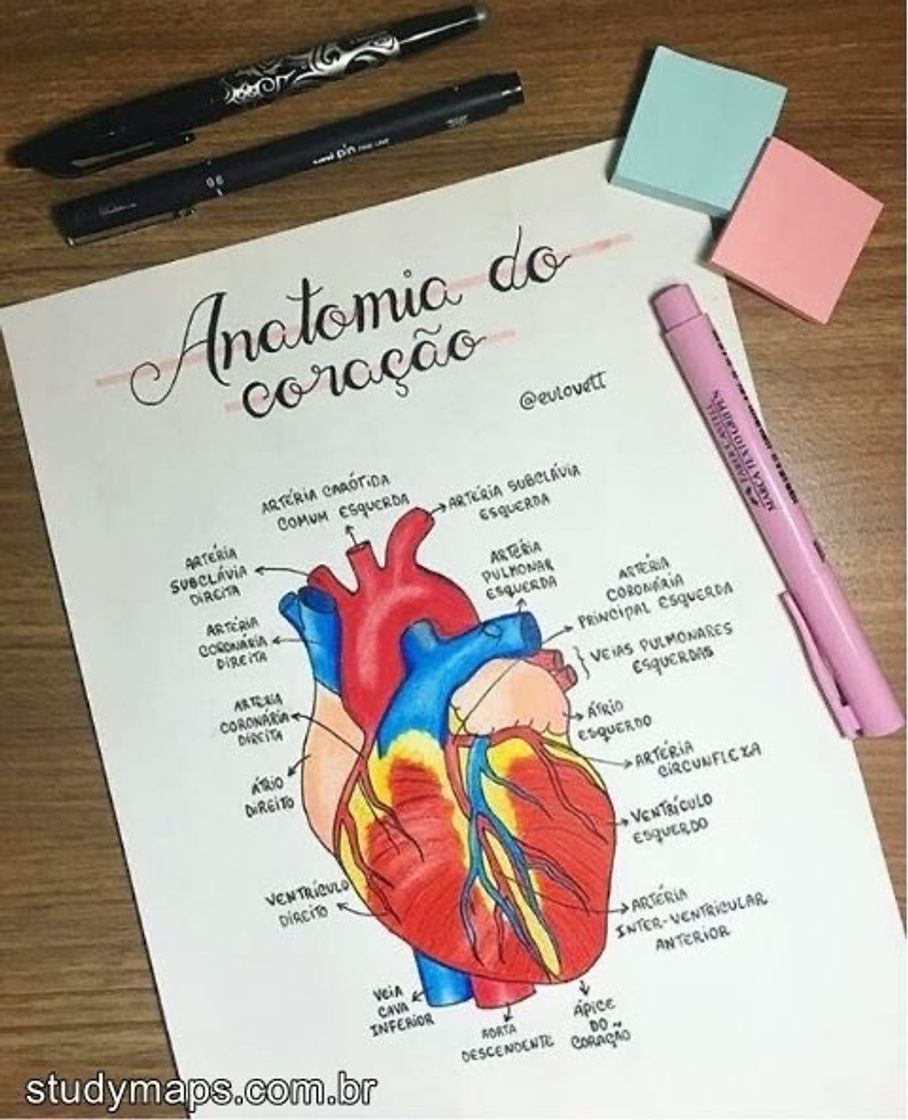 uni pin FINE LINE
Anatomia do
coração
@eulovett
ARTÉRIA CARÓTIDA
COMUM ESQUERDA
ARTÉRIA SUBCLÁVIA
ESQUERDA
ARTÉRIA
SUBCLÁVIA
DIREITA
ARTÉRIA
PULMONAR
ESQUERDA
ARTÉRIA
CORONÁRIA
PRINCIPAL ESQUERDA
ARTÉRIA
CORONÁRIA
DIREITA
VEIAS PULMONARES
ESQUERDAS
ARTÉRIA
CORONÁRIA
DIREITA
ÁTRIO
ESQUERDO
ARTÉRIA
CIRCUNFLEXA
ÁTRIO
DIREITO
VENTRÍCULO
ESQUERDO
VENTRÍCULO
DIREITO
ARTÉRIA
INTER-VENTRICULAR
ANTERIOR
VEIA
CAVA
INFERIOR
AORTA
DESCENDENTE
ÁPICE
DO
CORAÇÃO
FABER-CASTELL
MARCA TEXTO GRIFPEN
studymaps.com.br